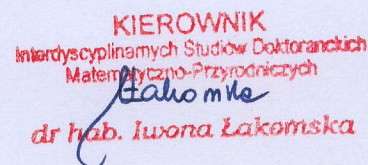 KIEROWNIK
Interdyscyplinarnych Studiów Doktoranckich
Matematyczno-Przyrodniczych
Łakomska
dr hab. Iwona Łakomska